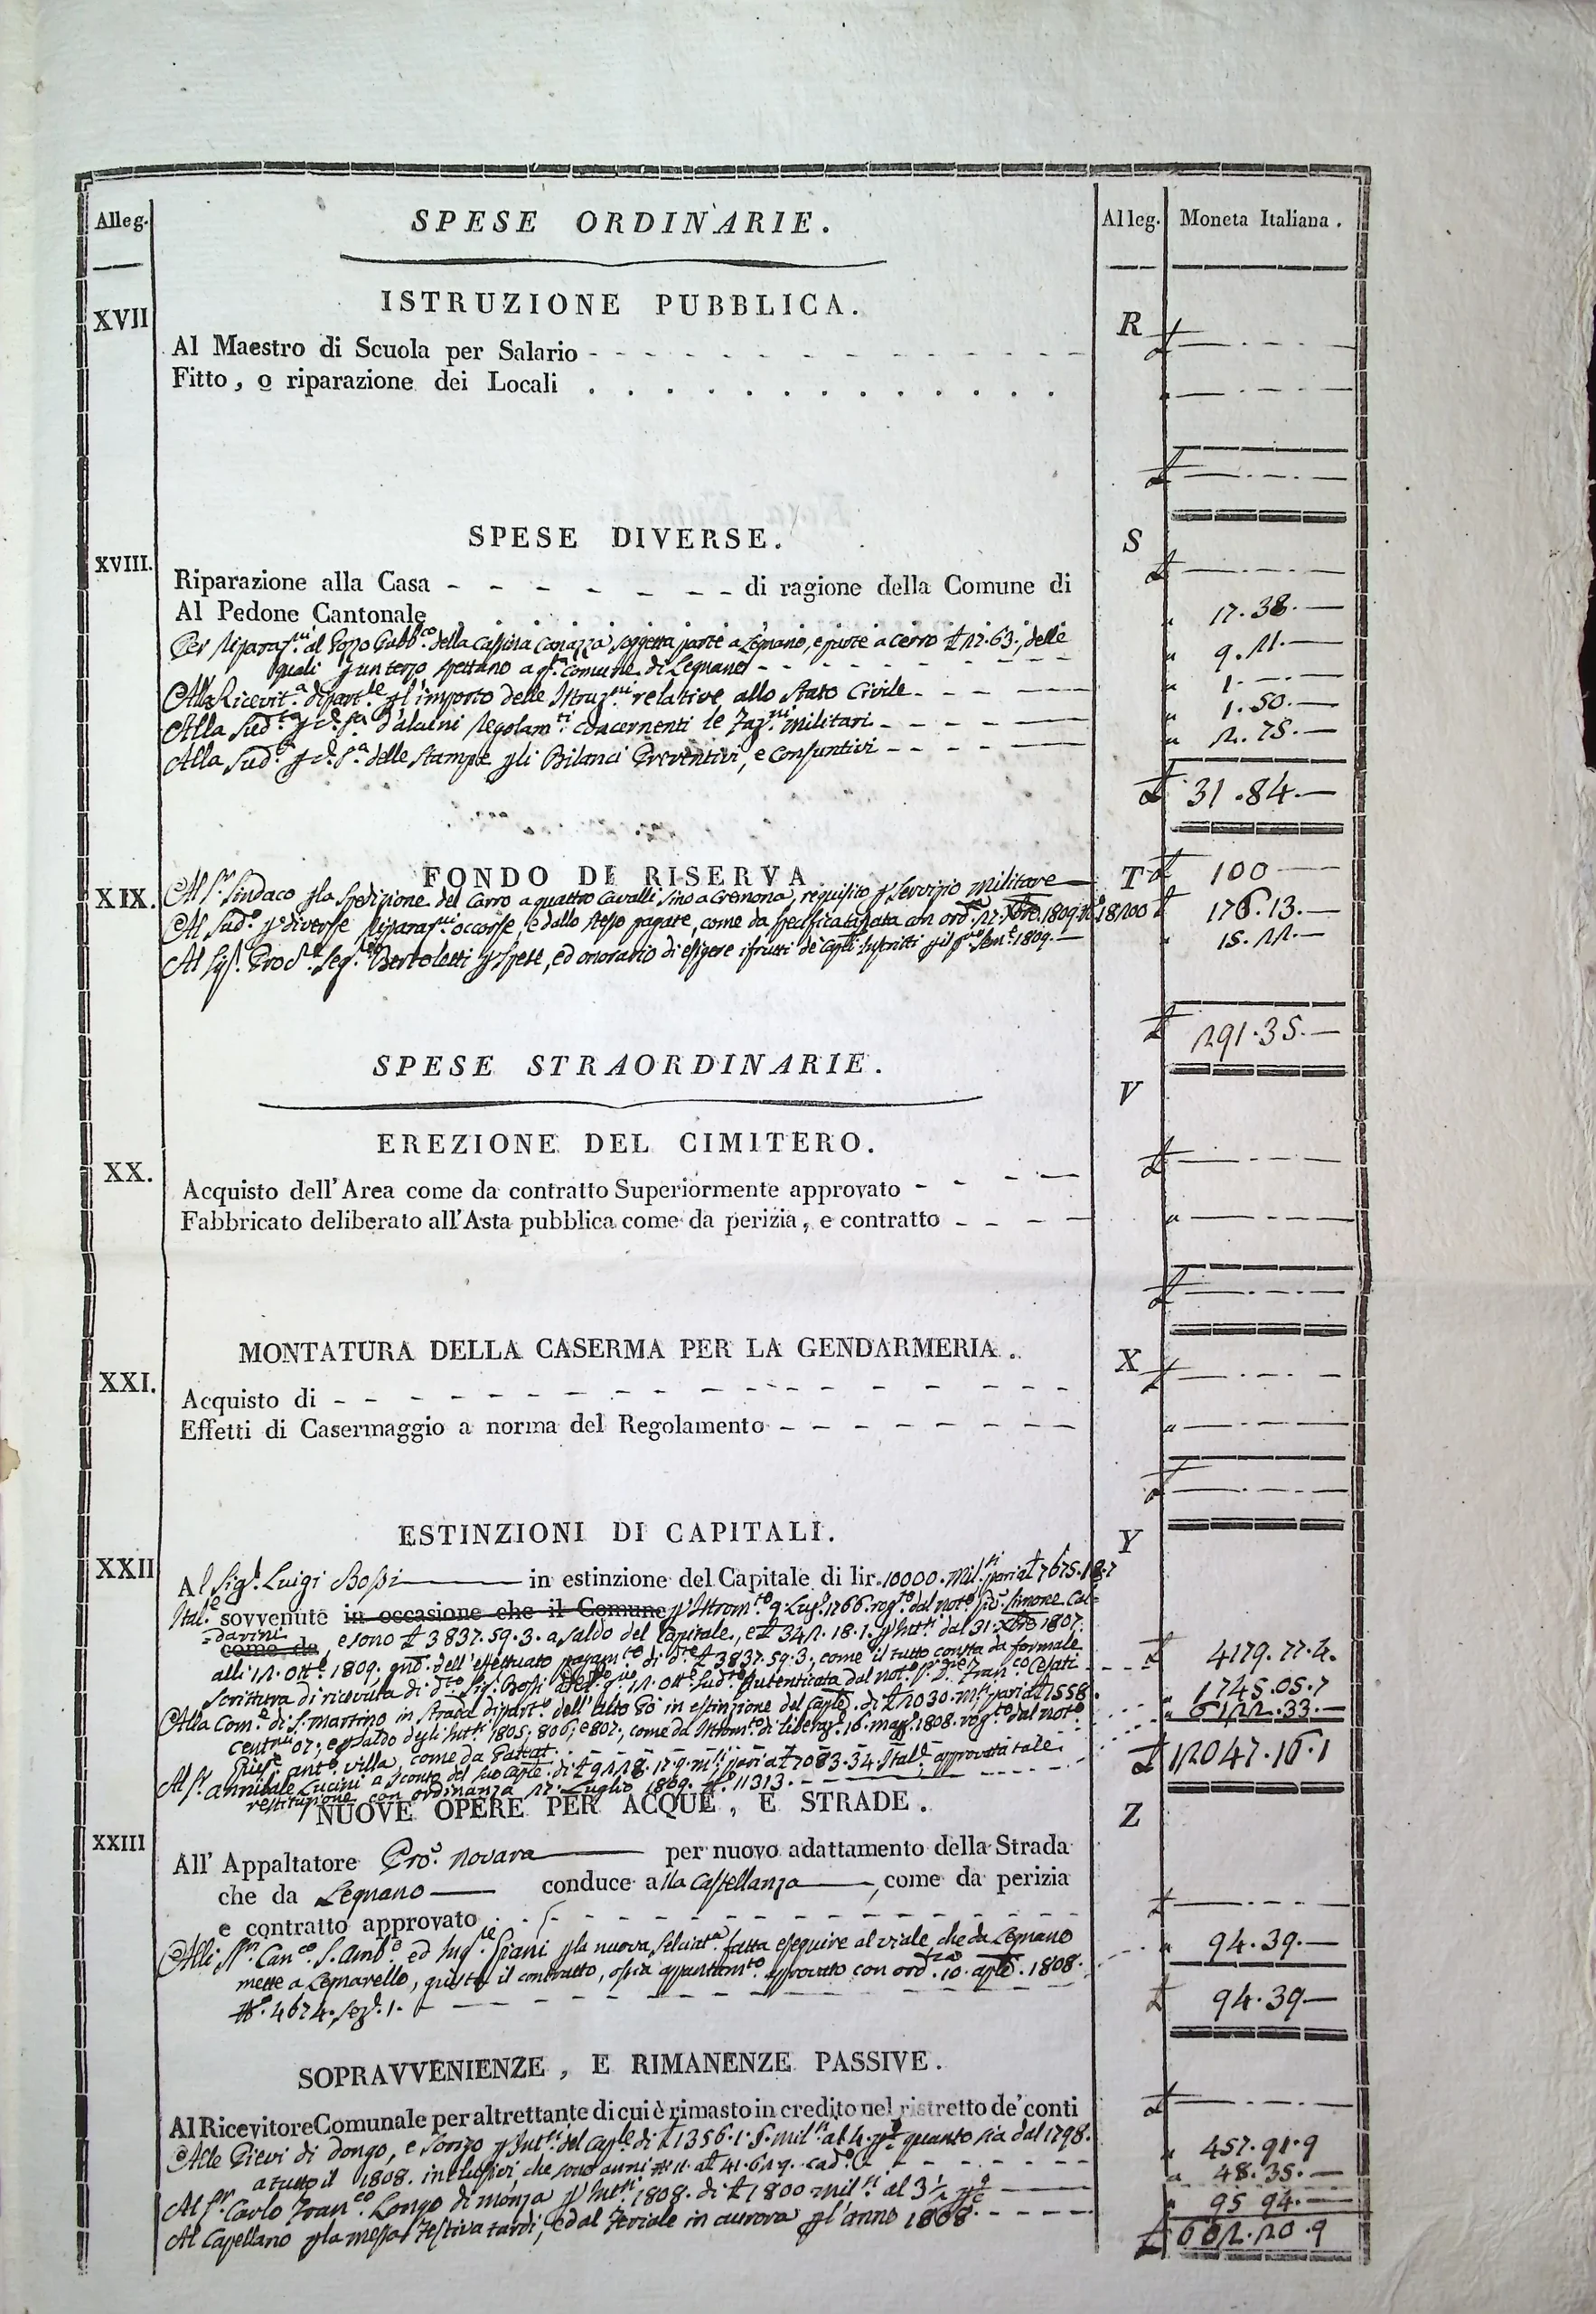 Alleg. SPESE ORDINARIE. Alleg. Moneta Italiana.
XVII ISTRUZIONE PUBBLICA. R
Al Maestro di Scuola per Salario
Fitto, o riparazione dei Locali
XVIII. SPESE DIVERSE. S
Riparazione alla Casa di ragione della Comune di
Al Pedone Cantonale 17.38.
Per Riparaz.ni al Pozzo Pubb.co della Cassina Canazza soggetta parte a Legnano, e parte a Cerro £ 27.63., delle
quali p un terzo spettano a q.ta Comune di Legnano 9.21.
Alla Ricevit.a dipart.le p l'importo delle Istruz.ni relative allo Stato Civile 1.
Alla Sud.ta p c.e s.a d'alcuni Regolam.ti concernenti le Faz.ni Militari 1.50.
Alla Sud.a p c.e s.a delle Stampe p li Bilanci Preventivi, e Consuntivi 2.75.
£ 31.84.
XIX. FONDO DI RISERVA T
Al S.r Sindaco p la Spedizione del Carro a quattro Cavalli sino a Cremona, requisito p Servizio Militare £ 100
Al Sud.o p diverse Riparaz.ni occorse, e dallo stesso pagate, come da specifica 1809. 176.13.
Al Sig.r Proc.e Seg.o Bertoletti p Spese, ed onorario di esigere i frutti de' Cap.li 1809. 15.22.
£ 291.35.
SPESE STRAORDINARIE. V
XX. EREZIONE DEL CIMITERO.
Acquisto dell'Area come da contratto Superiormente approvato
Fabbricato deliberato all'Asta pubblica come da perizia, e contratto
XXI. MONTATURA DELLA CASERMA PER LA GENDARMERIA. X
Acquisto di
Effetti di Casermaggio a norma del Regolamento
XXII ESTINZIONI DI CAPITALI. Y
Al Sig.r Luigi Bossi in estinzione del Capitale di lir. 10000. Mil.si pari a £ 7675.18.7
Ital.e sovvenute in occasione che il Comune p Istrom.to 9. Lug.o 1766. rog.to dal not.o Simone Cal=
=davini come da, e sono £ 3837.59.3. a saldo del Capitale, e £ 342.18.1. p Int.si dal 31. Xbre 1807.
alli 12. Ott.e 1809. dell'effettuato pagam.to di d.e £ 3837.59.3., come il tutto consta da formale
Scrittura di ricevuta di d.to Sig. Bossi 12. Ott.e Sud.o Autenticata dal not.o Fran.co Cesati £ 4179.77.4.
Alla Com.e di S. Martino in Strada dipart.o dell'Alto Pò in estinzione del Cap.le di £ 2030. M.si pari a £ 1558. 1745.05.7
Cent.mi 07; e p Saldo degli Int.si 1805, 806, e 807, come da Istrom.to di Liberaz.e 16. Mag.o 1808. rog.to dal not.o 6122.33.
Gius.e Ant.o Villa come da
Al S.r Annibale Lucini a Sconto del suo Cap.le di £ 9228.17.9. M.si pari a £ 7083.34. Ital.e approvata tale £ 12047.16.1
restituzione con ordinanza 27. Luglio 1809. N.o 11313.
XXIII NUOVE OPERE PER ACQUE, E STRADE. Z
All' Appaltatore Pro. Novara per nuovo adattamento della Strada
che da Legnano conduce alla Castellanza, come da perizia
e contratto approvato
Alli Can.co S. Amb.o ed Ing.re Giani p la nuova Selciat.a fatta eseguire al viale che da Legnano
mette a Legnarello, giusta il contratto, ossia appuntam.to approvato con ord. 10. ap.le 1808. 94.39.
N.o 4674. Sez. 1. £ 94.39
SOPRAVVENIENZE, E RIMANENZE PASSIVE.
Al Ricevitore Comunale per altrettante di cui è rimasto in credito nel ristretto de' conti
Alle Pievi di Dongo, e Sorico p Int.si del Cap.le di £ 1356.1.5. Mil.si al 4. p% quanto sia dal 1798.
a tutto il 1808. inclusivi, che sono anni N. 11. a £ 41.6 457.91.9
Al S.r Carlo Fran.co Longo di Monza p Int.si 1808. di £ 1800 Mil.si al 3 1/2 p% 48.35.
Al Capellano p la messa Festiva tardi, ed al Feriale in aurora p l'anno 1808. 95 94.
£ 602.20.9